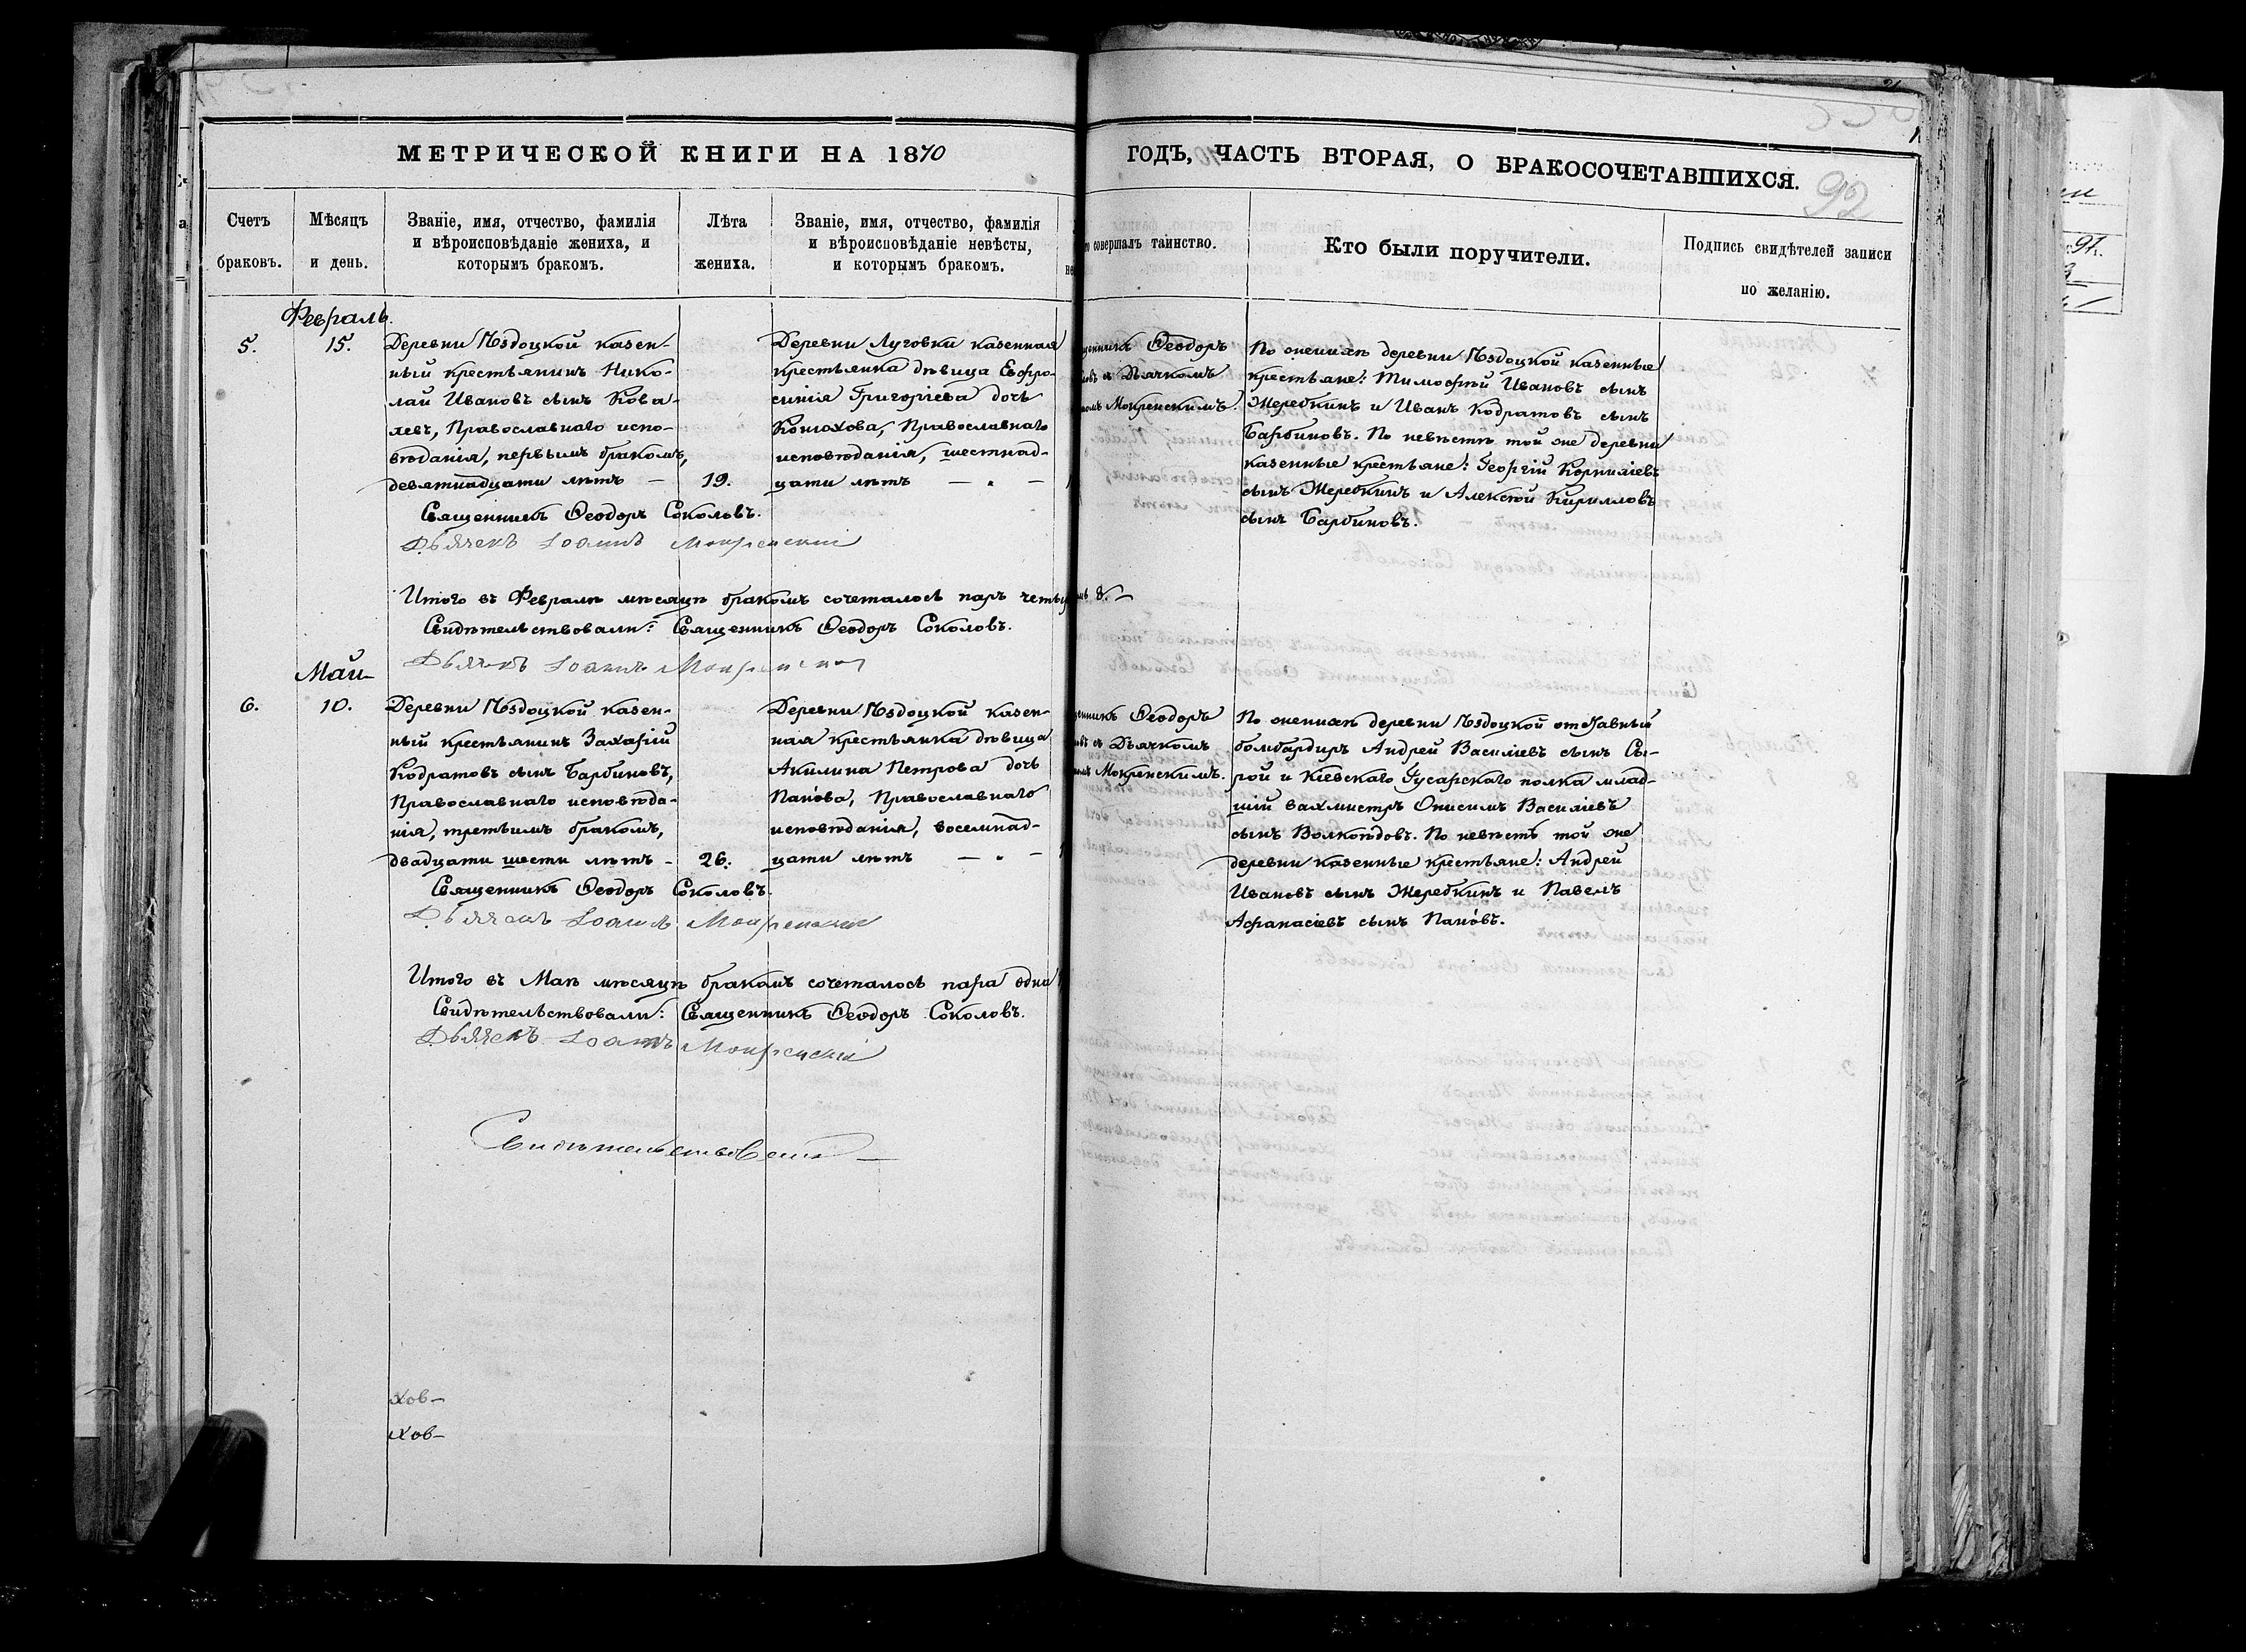 МЕТРИЧЕСКОЙ КНИГИ НА 1870
ГОДЪ, ЧАСТЬ ВТОРАЯ, О БРАКОСОЧЕТАВШИХСЯ.
92
Счетъ браковъ.
Мѣсяцъ и день.
Званіе, имя, отчество, фамилія
и вѣроисповѣданіе жениха, и
которымъ бракомъ.
Лѣта
жениха.
Званіе, имя, отчество, фамилія
и вѣроисповѣданіе невѣсты,
и которымъ бракомъ.
совершалъ таинство.
Кто были поручители.
Подпись свидѣтелей записи
по желанію.
Февраль.
5.
15.
Деревни Ѣздоцкой казен-
ный крестьянинъ Нико-
лай Ивановъ сынъ Кова-
левъ, Православнаго испо-
вѣданія, первымъ бракомъ,
девятнадцати лѣтъ —
19.
Деревни Луговки казенная
крестьянка дѣвица Евфро-
синія Григоріева дочь
Конюхова, Православнаго
исповѣданія, шестнад-
цати лѣтъ — " —
Ѳеодоръ
съ Дьячкомъ
Мокренскимъ.
По женихѣ деревни Ѣздоцкой казенные
крестьяне: Тимоѳей Ивановъ сынъ
Жеребкинъ и Иванъ Кодратовъ сынъ
Барбиновъ. По невѣстѣ той же деревни
казенные крестьяне: Георгій Корниліевъ
сынъ Жеребкинъ и Алексѣй Кирилловъ
сынъ Барбиновъ.
Священникъ Ѳеодоръ Соколовъ.
Дьячекъ Іоаннъ Мокренскій
Итого въ Февралѣ мѣсяцѣ бракомъ сочеталось паръ четыре
8. —
Свидѣтельствовали: Священникъ Ѳеодоръ Соколовъ.
Дьячекъ Іоаннъ Мокренскій
Май
6.
10.
Деревни Ѣздоцкой казен-
ный крестьянинъ Захарій
Кодратовъ сынъ Барбиновъ,
Православнаго исповѣда-
нія, третьимъ бракомъ,
двадцати шести лѣтъ -
26.
Деревни Ѣздоцкой казен-
ная крестьянка дѣвица
Акилина Петрова дочь
Панова, Православнаго
исповѣданія, восемнад-
цати лѣтъ — " —
Ѳеодоръ
съ Дьячкомъ
Мокренскимъ.
По женихѣ деревни Ѣздоцкой отставный
бомбардиръ Андрей Василіевъ сынъ Сы-
рой и Кіевскаго Гусарскаго полка млад-
шій вахмистръ Онисимъ Василіевъ
сынъ Волкоѣдовъ. По невѣстѣ той же
деревни казенные крестьяне: Андрей
Ивановъ сынъ Жеребкинъ и Павелъ
Аѳанасіевъ сынъ Пановъ.
Священникъ Ѳеодоръ Соколовъ.
Дьячекъ Іоаннъ Мокренскій
Итого въ Маѣ мѣсяцѣ бракомъ сочеталось пара одна
Свидѣтельствовали: Священникъ Ѳеодоръ Соколовъ.
Дьячекъ Іоаннъ Мокренскій
хов-
хов-